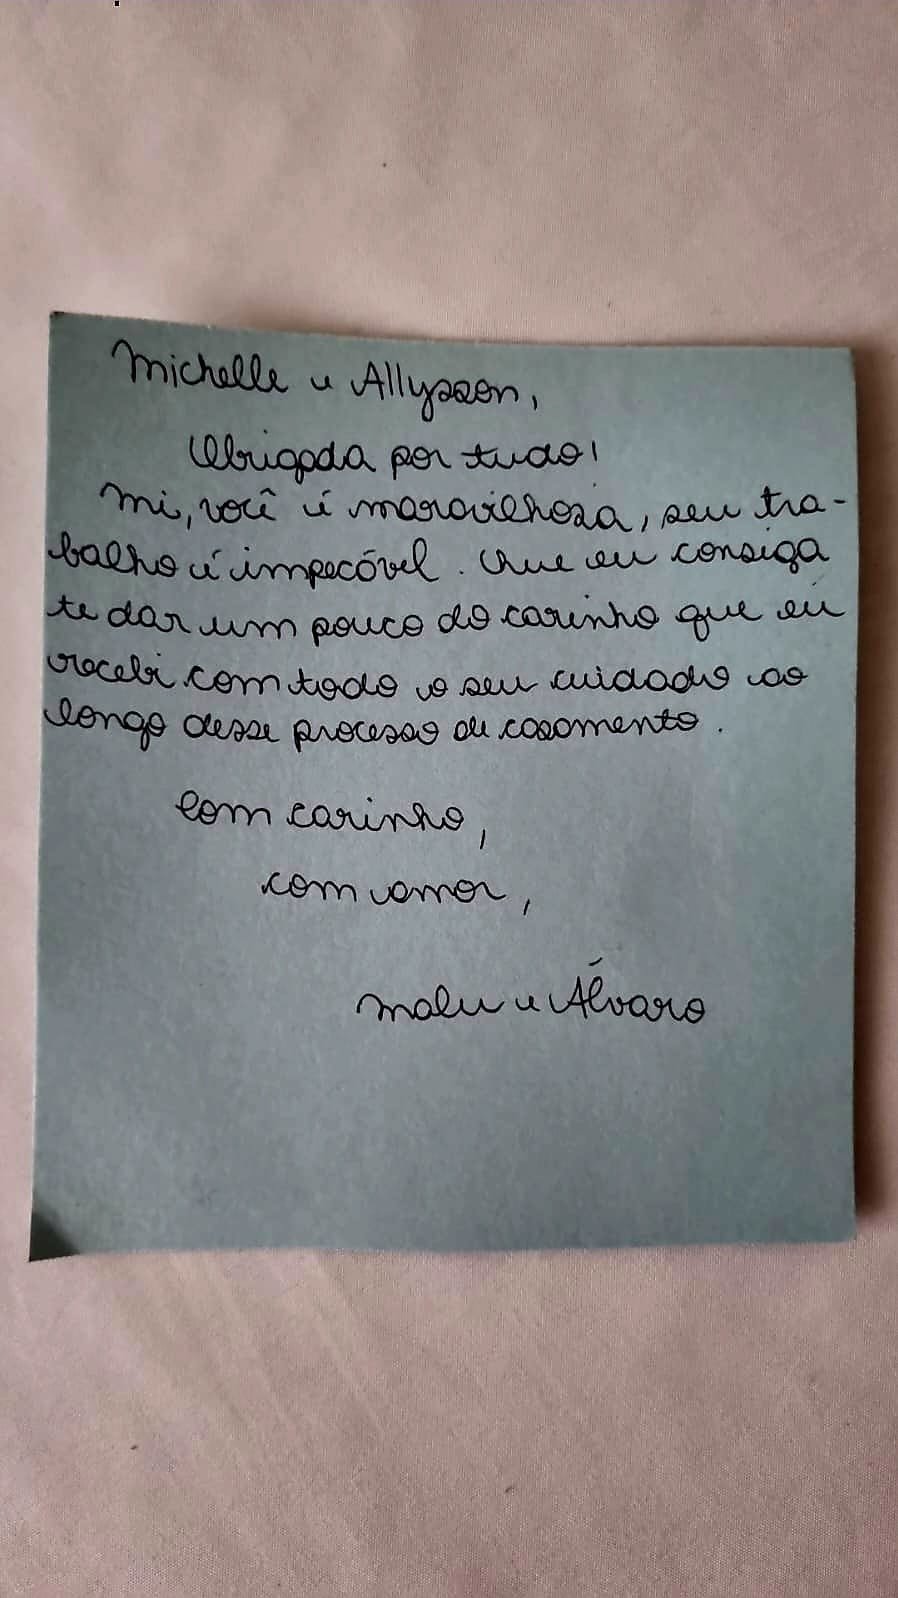 Michelle e Allysson,
Obrigada por tudo!
Mi, você é maravilhosa, seu tra-
balho é impecável. Que eu consiga
te dar um pouco do carinho que eu
recebi com todo o seu cuidado ao
longo desse processo de casamento.
Com carinho,
com amor,
Malu e Álvaro